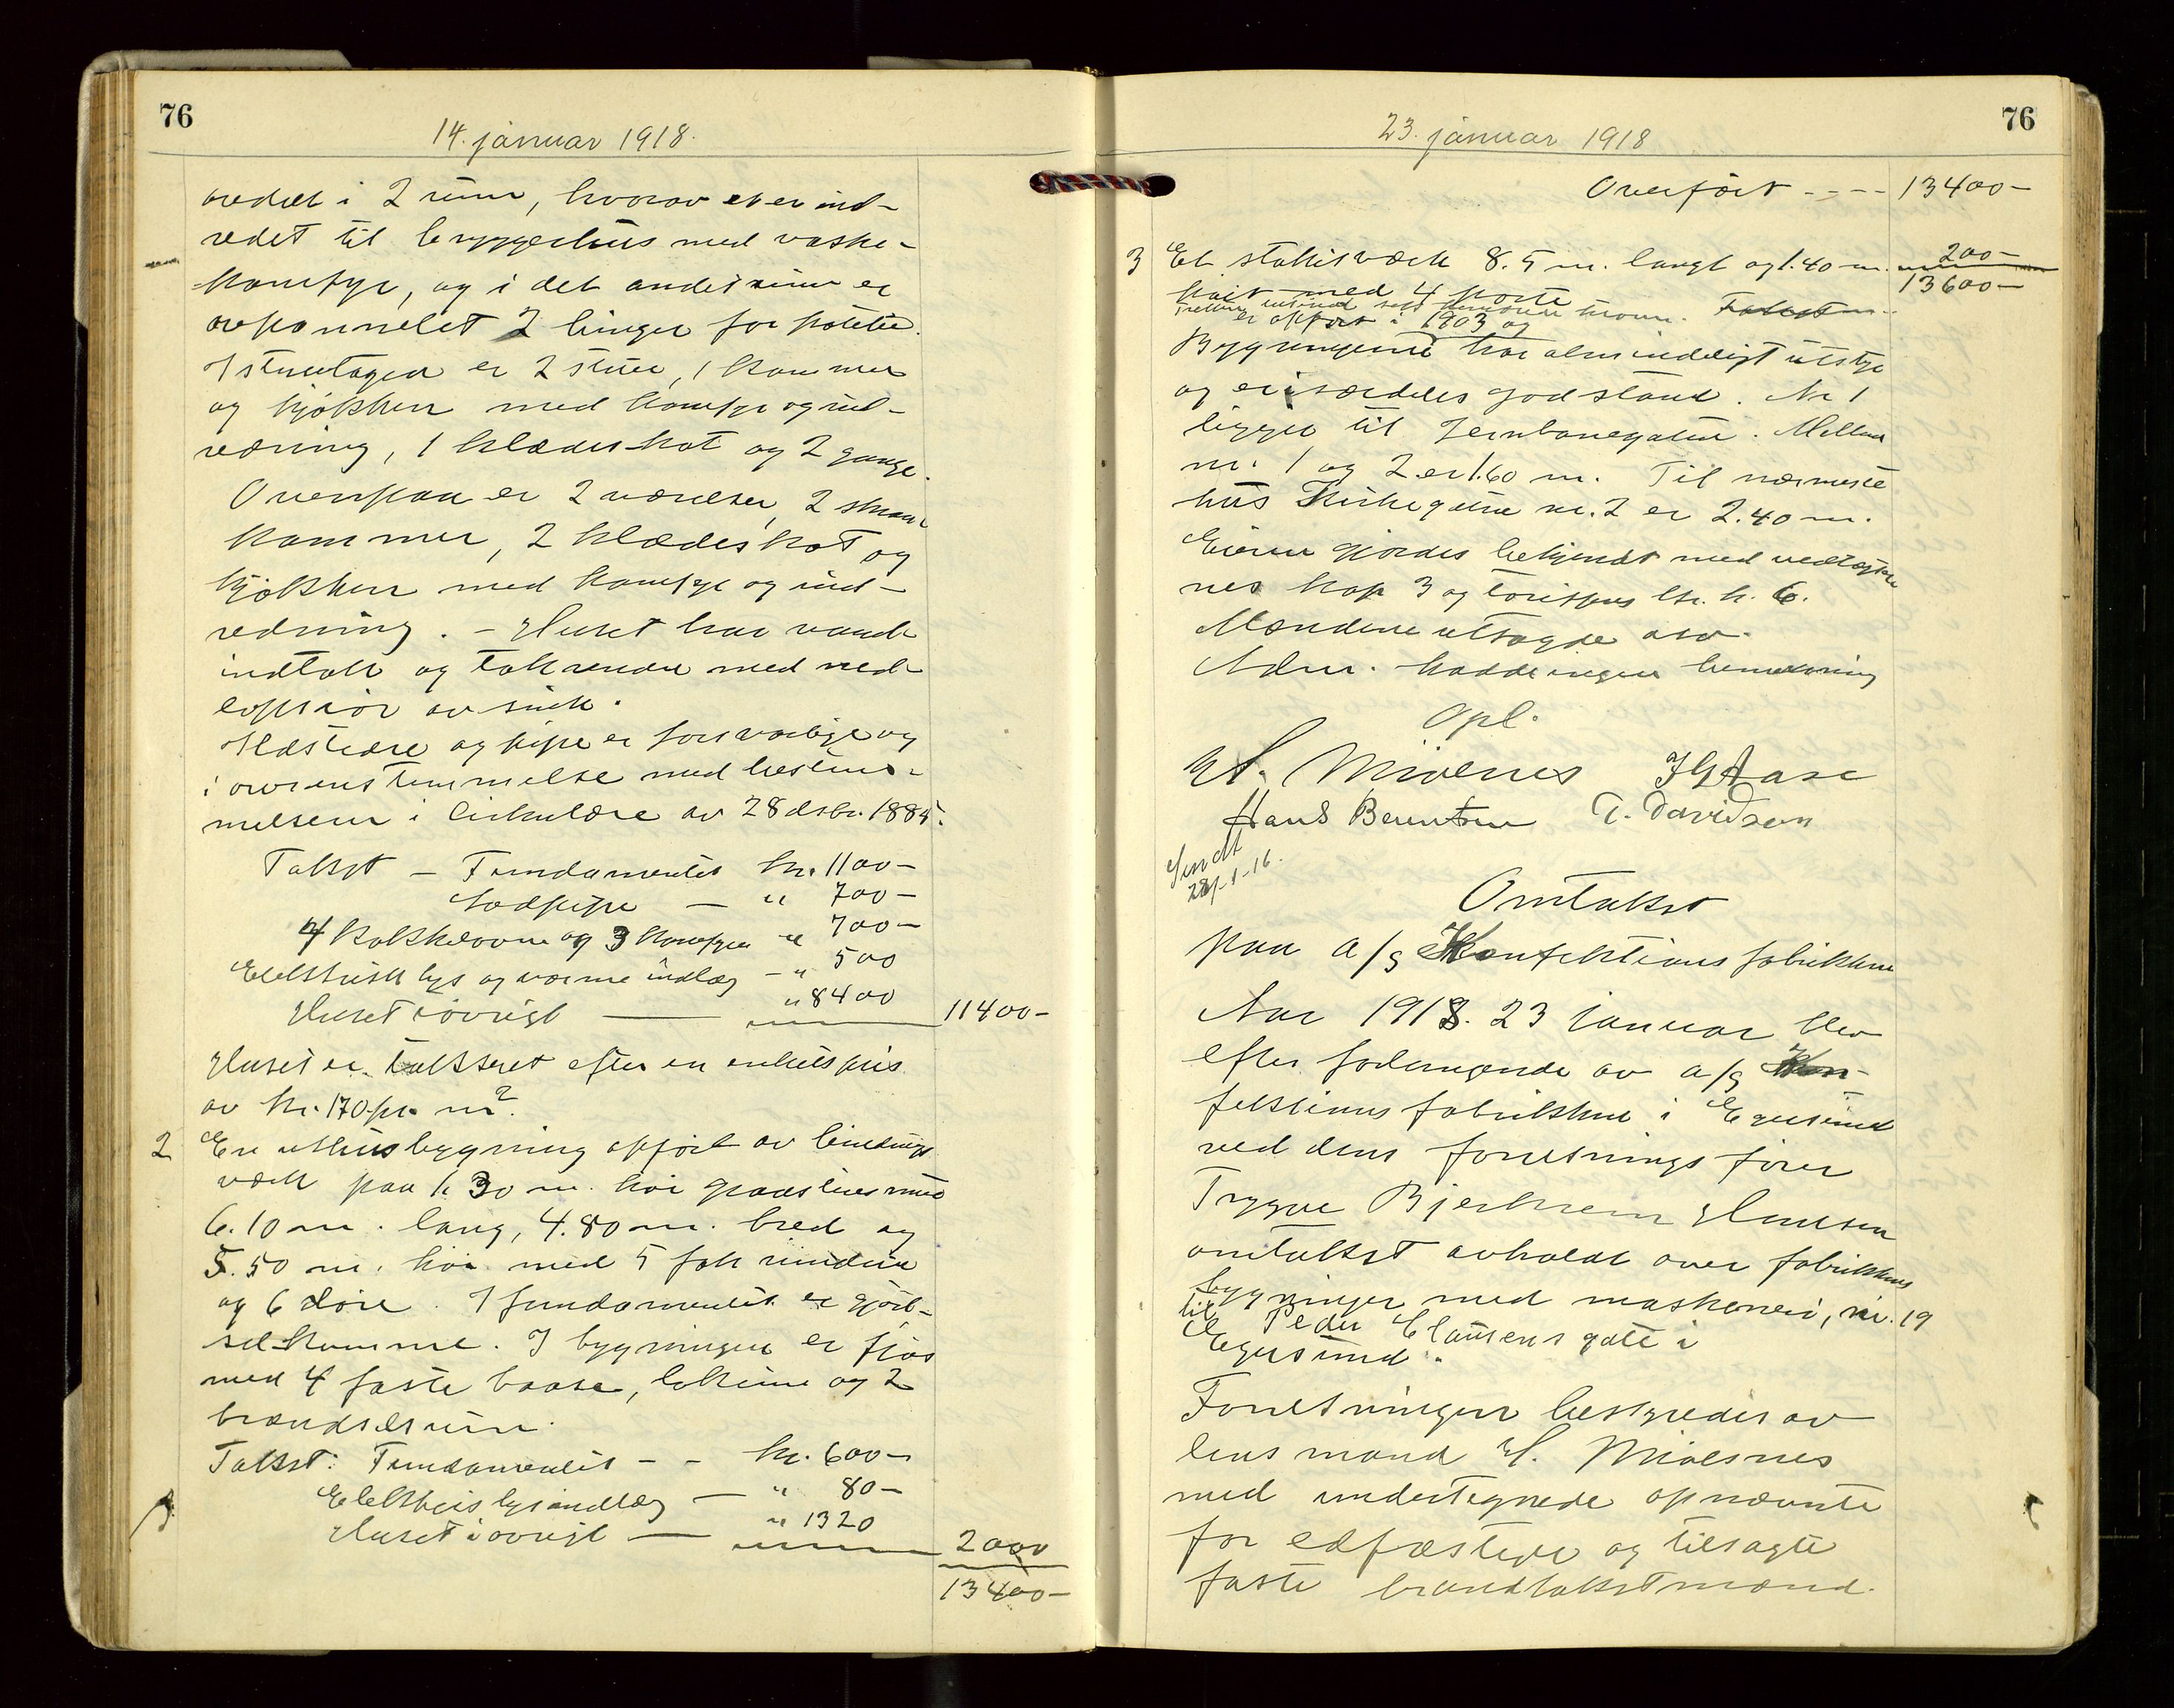 76
14. januar 1918.
avdelt i 2 rum, hvorav et er ind-
redet til bryggerhus med vaske-
komfyr, og i det andet rum er
avpannelet 2 binger for poteter.
I stueetagen er 2 stuer, 1 kammer
og kjøkken med komfyr og ind-
redning, 1 klædeskot og 2 gange.
Ovenpaa er 2 værelser, 2 skraa-
kammer, 2 klædeskot og
kjøkken med komfyr og ind-
redning. - Huset har vand-
indtak og takrender med ned-
løpsrør av sink.
Ildsteder og pipe er forsvarlige og
i overensstemmelse med bestem-
melsene i Cirkulære av 28 dsbr. 1885.
Takst - Fundamentet kr. 1100-
Lodpipe - " 700-
4 kakkelovne og 3 komfyrer " 700-
Elektrisk lys og varme indlæg - " 500
Huset iøvrigt " 8400 11400-
Huset er takseret efter en enhetspris
av kr. 170 pr. m².
2 En uthusbygning opført av bindings-
verk paa 1.30 m. høi graastensmur
6.10 m. lang, 4.80 m. bred og
5.50 m. høi med 5 fak vinduer
og 6 døre. I fundamentet er gjød-
selkumme. I bygningen er fjøs
med 4 faste baase, lokrum og 2
brændselsrum.
Takst: Fundamentet - - kr. 600-
Elektrisk lysindlæg - " 80-
Huset iøvrigt - " 1320 2000
13400-
76
23. januar 1918
Overført - - - - 13400-
3 Et stakitverk 8.5 m. langt og 1.40 m. 200-
høit med 4 porte 13600-
er opført i 1903 og
Bygningerne har almindeligt utstyr
og er i særdeles god stand. Nr 1
ligger til Jernbanegaten. Mellem
nr. 1 og 2 er 1.60 m. Til nærmeste
hus Kirkegaten nr. 2 er 2.40 m.
Eieren gjordes bekjendt med vedtægter-
nes kap 3 og
Mændene utsagde
hadde ingen bemerkning
Opl.
H. Mivesnes
Hans Berentsen T. Davidsen
Sendt
28/-1-16.
Omtakst
paa A/S Konfektionsfabrikken
Aar 1918. 23 januar blev
efter forlangende av A/S Kon-
fektionsfabrikken i Egersund
ved dens forretningsfører
Trygve Bjerkrem Hansen
omtakst avholdt over fabrikkens
bygninger med maskineri, nr. 19
til Peder Clausens gate i
Egersund.
Forretningen bestyredes av
lensmand H. Mivesnes
med undertegnede opnævnte
for edfæstede og tilsagte
faste brandtakstmænd.